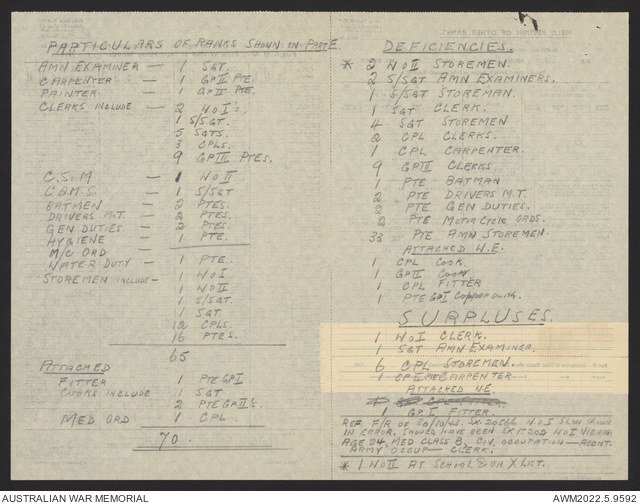 PARTICULARS OF RANKS SHOWN IN PART E.
AMN EXAMINER — 1 SGT.
CARPENTER — 1 GPII PTE.
PAINTER — 1 GPII PTE.
CLERKS INCLUDE — 2 NOII's.
1 S/SGT.
5 SGTS.
3 CPLS.
9 GPIII PTES.
C.S.M — 1 NOII
C.Q.M.S. — 1 S/SGT
BATMEN — 2 PTES.
DRIVERS M.T. — 2 PTES.
GEN DUTIES — 2 PTES.
HYGIENE — 1 PTE.
M/C ORD
WATER DUTY — 1 PTE.
STOREMEN INCLUDE — 1 NOI
1 NOII
1 S/SGT.
1 SGT.
12 CPLS.
16 PTES.
65
ATTACHED
FITTER 1 PTE GPI
COOKS INCLUDE 1 SGT
2 PTE GPII's.
MED ORD 1 CPL.
70.
DEFICIENCIES.
* 2 NOII STOREMEN.
2 S/SGT AMN EXAMINERS.
1 S/SGT STOREMAN.
1 SGT CLERK.
4 SGT STOREMEN
2 CPL CLERKS.
1 CPL CARPENTER.
9 GPIII CLERKS
1 PTE BATMAN
2 PTE DRIVERS M.T.
2 PTE GEN DUTIES.
2 PTE MOTOR CYCLE ORDS.
33 PTE AMN STOREMEN.
ATTACHED W.E.
1 CPL COOK.
1 GPII COOK
1 CPL FITTER
1 PTE GPI Coppersmith.
SURPLUSES.
1 NOI CLERK.
1 SGT AMN EXAMINER.
6 CPL STOREMEN
1 CARPENTER
ATTACHED WE
1 GPI FITTER.
REF. F/R OF 20/10/45. SX.20566 NOI SHOWN
IN ERROR. SHOULD HAVE BEEN NOI
AGE 24, MED CLASS B, CIV. OCCUPATION — ACCNT.
ARMY OCCUP — CLERK.
* 1 NOII AT SCHOOL & ON X LIST.
AUSTRALIAN WAR MEMORIAL
AWM2022.5.9592